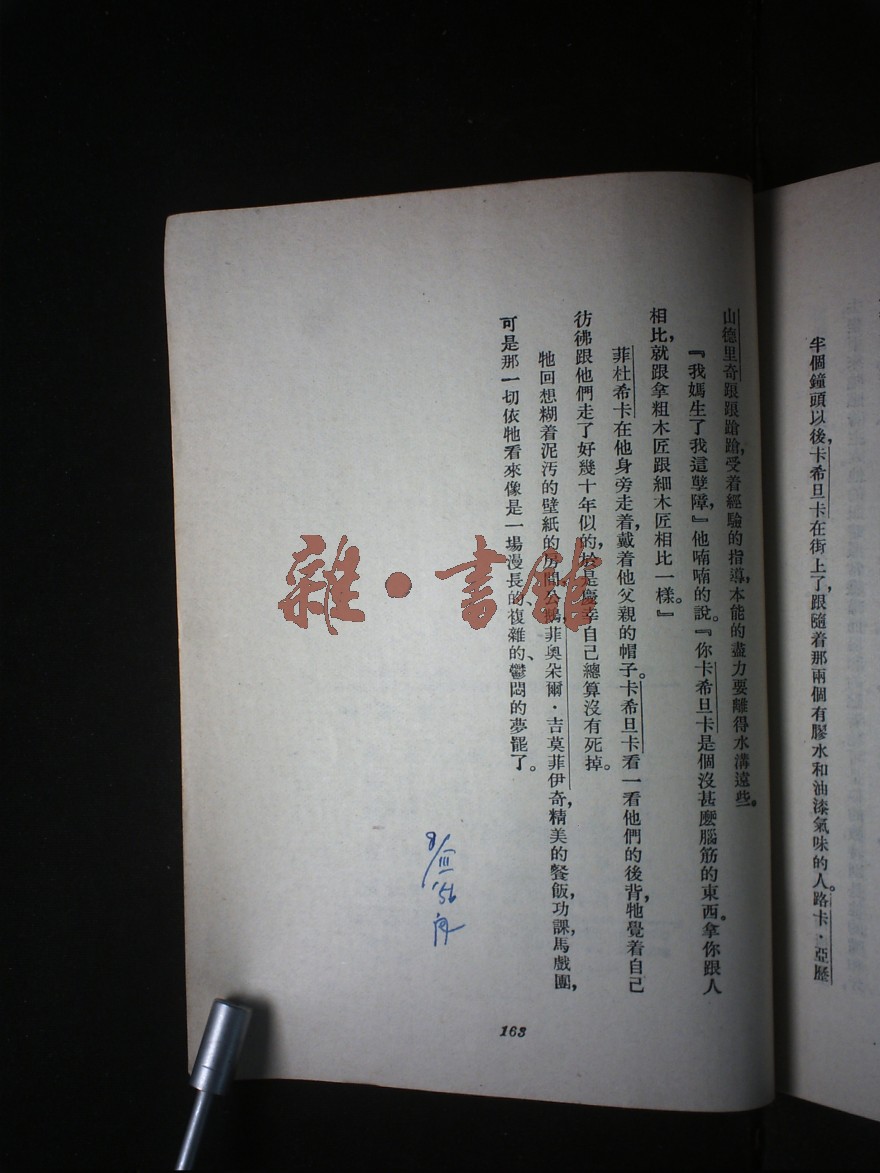 半個鐘頭以後，卡希旦卡在街上了，跟隨着那兩個有膠水和油漆氣味的人。路卡·亞歷
山德里奇踉踉蹌蹌，受着經驗的指導，本能的盡力要離得水溝遠些。
『我媽生了我這孽障，』他喃喃的說。『你卡希旦卡是個沒甚麼腦筋的東西。拿你跟人
相比，就跟拿粗木匠跟細木匠相比一樣。』
菲杜希卡在他身旁走着，戴着他父親的帽子。卡希旦卡看一看他們的後背，牠覺着自己
彷彿跟他們走了好幾十年似的，於是慶幸自己總算沒有死掉。
牠回想糊着泥污的壁紙的房間，公鵝，菲奧朵爾·吉莫菲伊奇，精美的餐飯，功課，馬戲團，
可是那一切依牠看來像是一場漫長的、複雜的、鬱悶的夢罷了。
8/III, 56
163
雜·書館